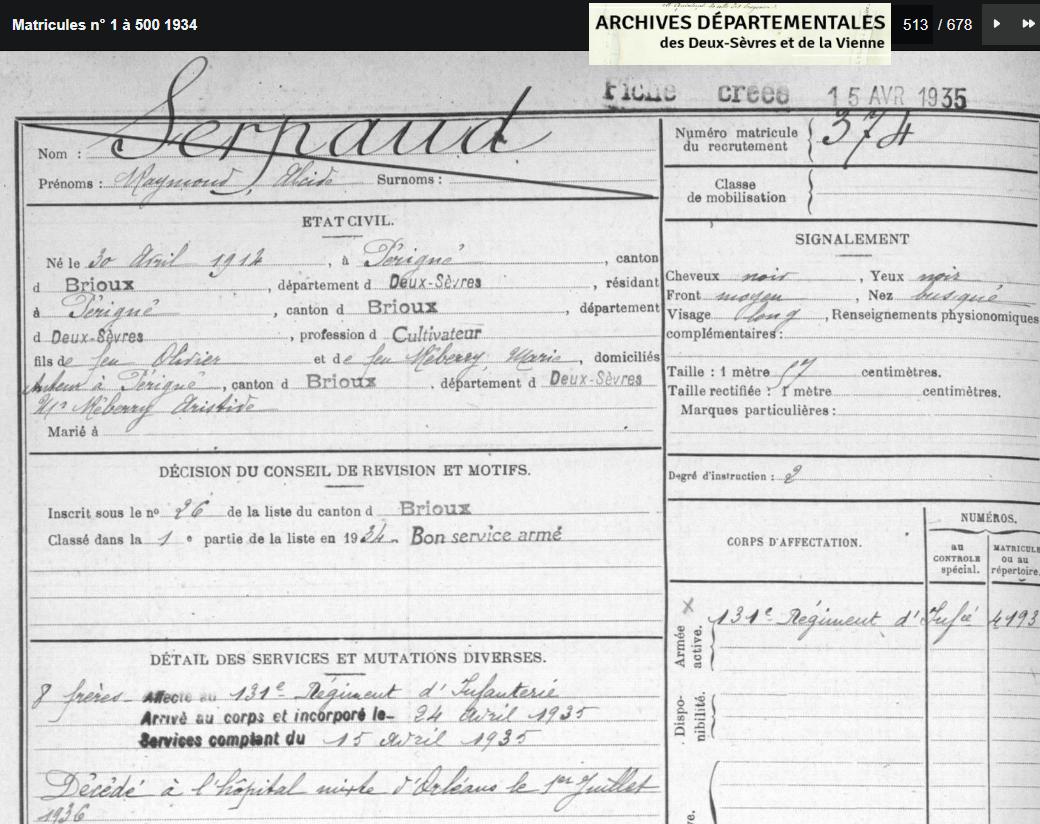 Matricules n° 1 à 500 1934
ARCHIVES DÉPARTEMENTALES
des Deux-Sèvres et de la Vienne
513 / 678
Fiche créée 15 AVR 1935
Nom : Sernaud
Prénoms : Raymond, Alcide Surnoms :
Numéro matricule
du recrutement 374
Classe
de mobilisation
ETAT CIVIL.
Né le 30 Avril 1914, à Périgné, canton
d Brioux, département d Deux-Sèvres, résidant
à Périgné, canton d Brioux, département
d Deux-Sèvres, profession d Cultivateur
fils de feu Olivier et de feu Méberry, Marie, domiciliés
à Périgné, canton d Brioux, département d Deux-Sèvres
Méberry Aristide
Marié à
SIGNALEMENT
Cheveux noir, Yeux noir
Front moyen, Nez busqué
Visage long, Renseignements physionomiques
complémentaires :
Taille : 1 mètre 57 centimètres.
Taille rectifiée : 1 mètre centimètres.
Marques particulières :
Degré d'instruction : 2
DÉCISION DU CONSEIL DE REVISION ET MOTIFS.
Inscrit sous le no 26 de la liste du canton d Brioux
Classé dans la 1e partie de la liste en 1934. Bon service armé
CORPS D'AFFECTATION.
NUMÉROS.
au
CONTROLE
spécial.
MATRICULE
ou au
répertoire.
Armée
active.
131e Régiment d'Infie 4193
Dispo-
nibilité.
DÉTAIL DES SERVICES ET MUTATIONS DIVERSES.
8 frères - Affecté au 131e Régiment d'Infanterie
Arrivé au corps et incorporé le 24 Avril 1935
Services comptant du 15 Avril 1935
Décédé à l'hôpital mixte d'Orléans le 1er Juillet
1936